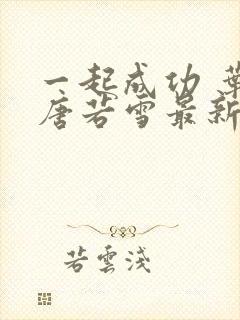 一起成功 葉
唐若雪最新
若雲淺